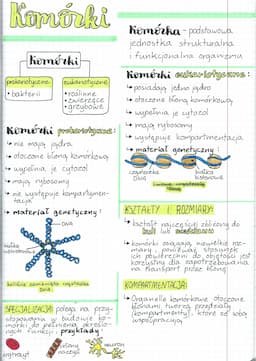 Komórki
Komórki
prokariotyczne:
• bakterii
eukariotyczne:
• roślinne
• zwierzęce
• grzybowe
Komórki prokariotyczne:
↳ nie mają jądra
↳ otoczone błoną komórkową
↳ wypełnia je cytozol
↳ mają rybosomy
↳ nie występuje kompartymen-
tacja
↳ materiał genetyczny:
DNA
białka
koliście zamknięta cząsteczka
DNA
SPECJALIZACJA: polega na przy-
stosowaniu w budowie ko-
mórki do pełnienia określo-
nych funkcji; przykłady:
erytrocyt
neuron
Komórka - podstawowa
jednostka strukturalna
i funkcjonalna organizmu
Komórki eukariotyczne:
↳ posiadają jedno jądro
↳ otoczone błoną komórkową
↳ wypełnia je cytozol
↳ mają rybosomy
↳ występuje kompartmentacja
↳ materiał genetyczny:
cząsteczka
DNA
białka
histonowe
KSZTAŁTY I ROZMIARY:
↳ kształt najczęściej zbliżony do
kuli lub sześcianu
↳ komórki osiągają niewielkie roz-
miary, ponieważ stosunek
ich powierzchni do objętości jest
korzystny dla zapotrzebowania
na transport przez błonę
KOMPARTMENTACJA:
↳ Organelle komórkowe otoczone
błonami tworzą przedziały
(kompartmenty), które ze sobą
współpracują